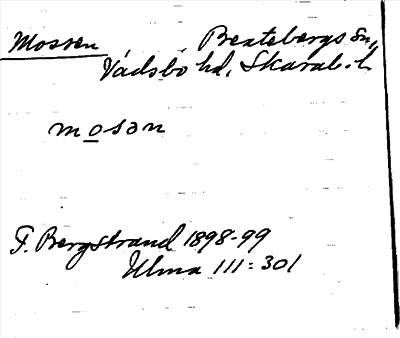 Mossen Bextsbergs sn,
Vadsbo hd, Skarab. l.
mosan
F. Bergstrand 1898-99
Ulma 111:301